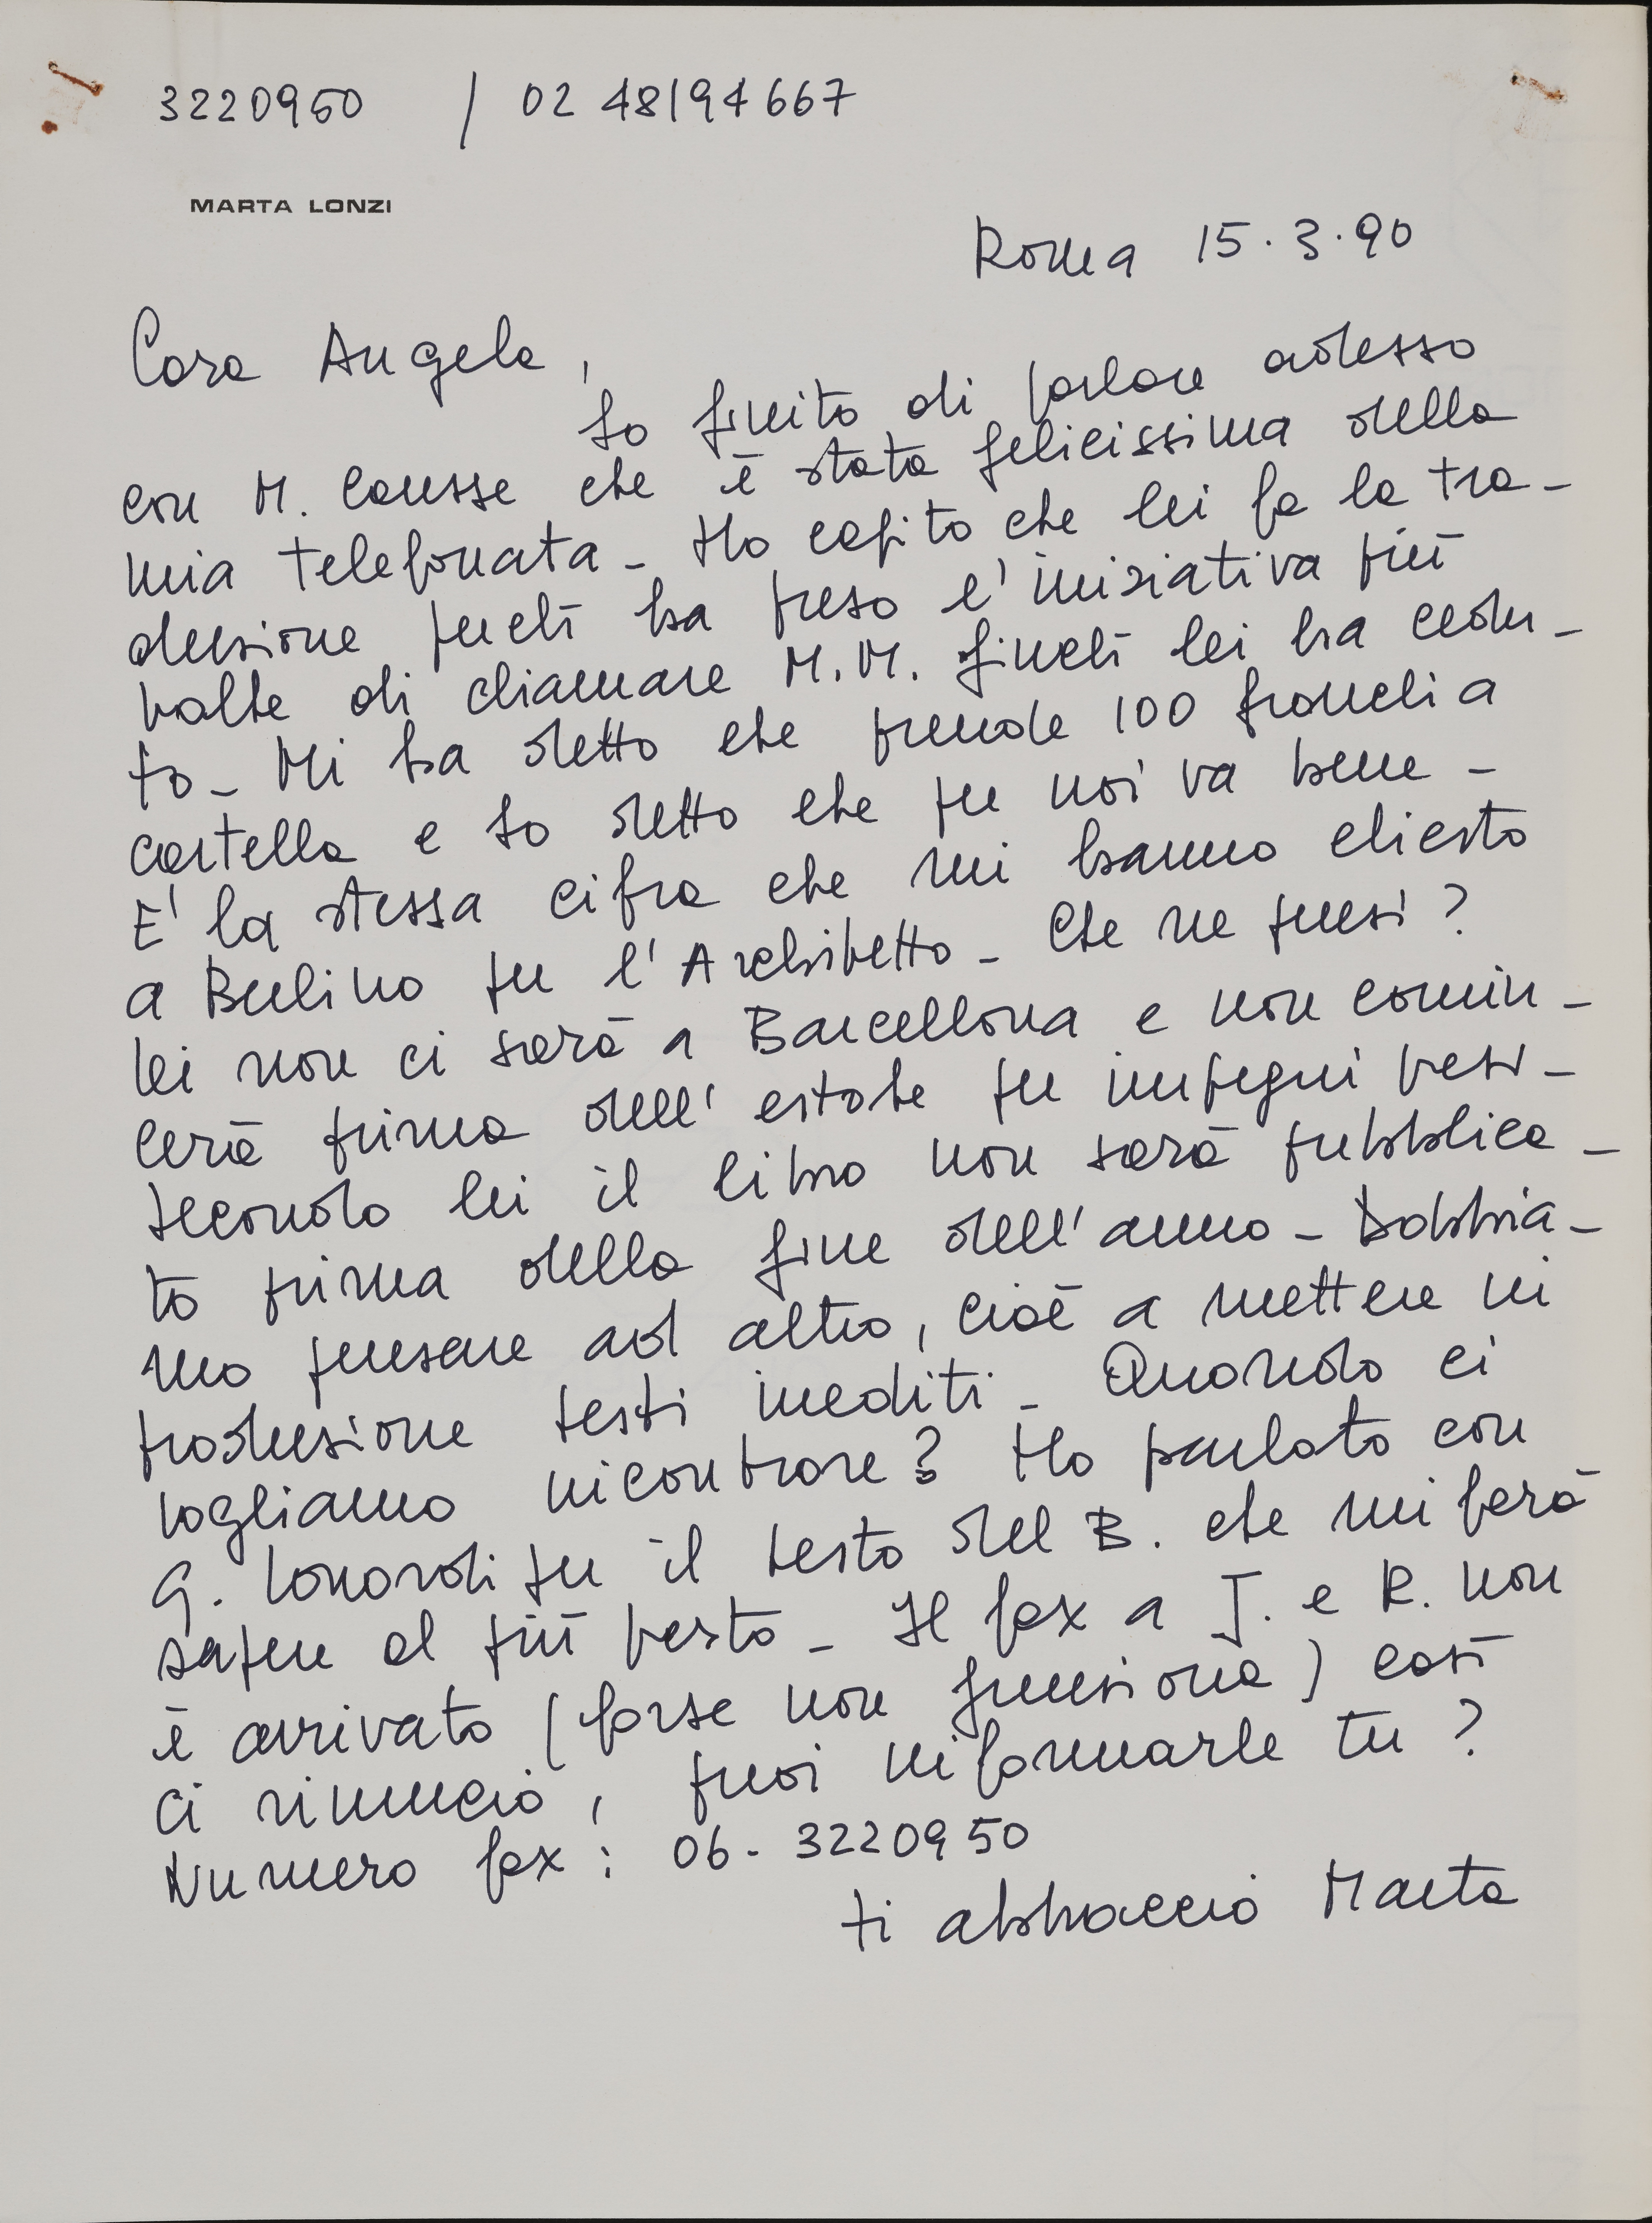 3220950 / 02 48194667
MARTA LONZI
Roma 15.3.90
Cara Angela,
ho finito di parlare adesso
con M. Causse che è stata felicissima della
mia telefonata - Ho capito che lei fa la tra-
duzione perché ha preso l'iniziativa più
volte di chiamare M.M. finché lei ha cedu-
to - Mi ha detto che prende 100 franchi a
cartella e ho detto che per noi va bene -
E' la stessa cifra che mi hanno chiesto
a Berlino per l'Architetto - Che ne pensi?
lei non ci sarà a Barcellona e non comin-
cerà prima dell'estate per impegni presi -
secondo lei il libro non sarà pubblica-
to prima della fine dell'anno - Dobbia-
mo pensare ad altro, cioè a mettere in
produzione testi inediti - Quando ci
vogliamo incontrare? Ho parlato con
G. per il testo del B. che mi farà
sapere al più presto - Il fax a J. e R. non
è arrivato (forse non funziona) così
ci rinuncio, puoi informarle tu?
Numero fax: 06 - 3220950
ti abbraccio Marta